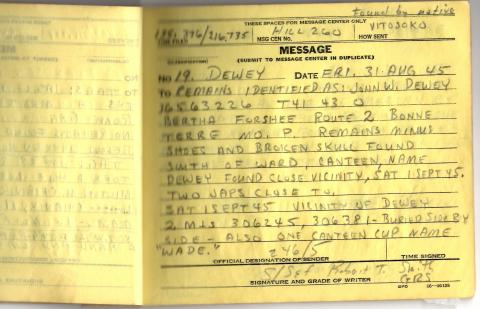 Found by native
THESE SPACES FOR MESSAGE CENTER ONLY
199.376/216.735 HILL 260 VITOSOKO
TIME FILED MSG CEN No. HOW SENT
MESSAGE
(SUBMIT TO MESSAGE CENTER IN DUPLICATE)
No 19. DEWEY DATE FRI. 31 AUG 45
TO REMAINS IDENTIFIED AS: JOHN W. DEWEY
16563226 T41 43 O
BERTHA FORSHEE ROUTE 2 BONNE
TERRE MO. P. REMAINS MINUS
SHOES AND BROKEN SKULL FOUND
SOUTH OF WARD, CANTEEN, NAME
DEWEY FOUND CLOSE VICINITY, SAT 1 SEPT 45.
TWO JAPS CLOSE TO.
SAT 1 SEPT 45 VICINITY OF DEWEY
2 M1s 306245, 306381 - BURIED SIDE BY
SIDE - ALSO ONE CANTEEN CUP NAME
"WADE."
OFFICIAL DESIGNATION OF SENDER TIME SIGNED
S/Sgt Robert T. Smith
GRS
SIGNATURE AND GRADE OF WRITER